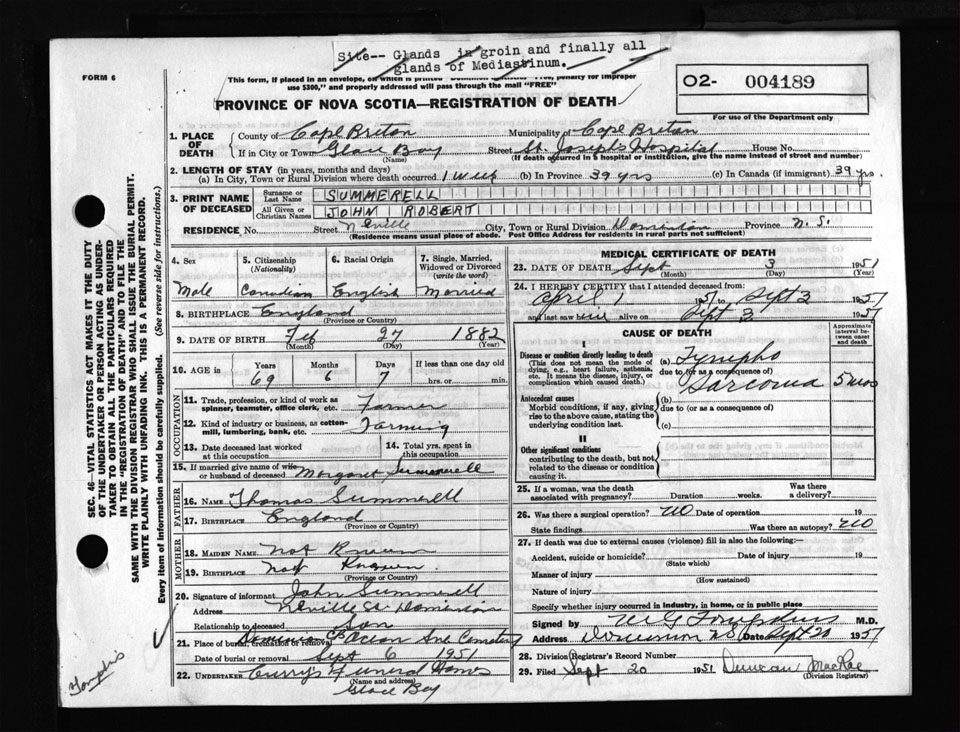 Site-- Glands in groin and finally all
glands of Mediastinum.
FORM 6
This form, if placed in an envelope, on which is printed "Dominion Statistics—Free, penalty for improper
use $300," and properly addressed will pass through the mail "FREE"
O2- 004189
For use of the Department only
PROVINCE OF NOVA SCOTIA—REGISTRATION OF DEATH
1. PLACE OF DEATH County of Cape Breton Municipality of Cape Breton
If in City or Town Glace Bay (Name) Street St. Joseph's Hospital House No.
(If death occurred in a hospital or institution, give the name instead of street and number)
2. LENGTH OF STAY (in years, months and days)
(a) In City, Town or Rural Division where death occurred 1 week (b) In Province 39 yrs (c) In Canada (if immigrant) 39 yrs.
3. PRINT NAME OF DECEASED Surname or Last Name SUMMERELL
All Given or Christian Names JOHN ROBERT
RESIDENCE No. Street Neville City, Town or Rural Division Dominion Province N. S.
(Residence means usual place of abode. Post Office Address for residents in rural parts not sufficient)
4. Sex Male
5. Citizenship (Nationality) Canadian
6. Racial Origin English
7. Single, Married, Widowed or Divorced (write the word) Married
8. BIRTHPLACE England
(Province or Country)
9. DATE OF BIRTH Feb 27 1882
(Month) (Day) (Year)
10. AGE in Years 69 Months 6 Days 7 If less than one day old
hrs. or min.
OCCUPATION
11. Trade, profession, or kind of work as spinner, teamster, office clerk, etc. Farmer
12. Kind of industry or business, as cotton-mill, lumbering, bank, etc. Farming
13. Date deceased last worked at this occupation
14. Total yrs. spent in this occupation
15. If married give name of wife or husband of deceased Margaret Summerell
FATHER
16. NAME Thomas Summerell
17. BIRTHPLACE England
(Province or Country)
MOTHER
18. MAIDEN NAME Not Known
19. BIRTHPLACE Not Known.
(Province or Country)
20. Signature of informant John Summerell
Address Neville St Dominion
Relationship to deceased Son
21. Place of burial, cremation or removal Ocean Ave Cemetery
Date of burial or removal Sept 6 1951
22. UNDERTAKER Curry's Funeral Home
(Name and address)
Glace Bay
MEDICAL CERTIFICATE OF DEATH
23. DATE OF DEATH Sept 3 1951
(Month) (Day) (Year)
24. I HEREBY CERTIFY that I attended deceased from:
April 1 1951 to Sept 3 1951
and last saw him alive on Sept 3 1951
CAUSE OF DEATH
Approximate interval between onset and death
I
Disease or condition directly leading to death
(This does not mean the mode of dying, e.g., heart failure, asthenia, etc. It means the disease, injury, or complication which caused death.)
(a) Lympho
due to (or as a consequence of)
Sarcoma 5 mos
Antecedent causes
Morbid conditions, if any, giving rise to the above cause, stating the underlying condition last.
(b)
due to (or as a consequence of)
(c)
II
Other significant conditions
contributing to the death, but not related to the disease or condition causing it.
25. If a woman, was the death associated with pregnancy? Duration weeks. Was there a delivery?
26. Was there a surgical operation? no Date of operation 19
State findings Was there an autopsy? no
27. If death was due to external causes (violence) fill in also the following:—
Accident, suicide or homicide? Date of injury 19
(State which)
Manner of injury
(How sustained)
Nature of injury
Specify whether injury occurred in industry, in home, or in public place
Signed by M.D.
Address Dominion NS Date Sept 20 1951
28. Division Registrar's Record Number
29. Filed Sept 20 1951 Duncan MacRae
(Division Registrar)
SEC. 46—VITAL STATISTICS ACT MAKES IT THE DUTY
OF THE UNDERTAKER OR PERSON ACTING AS UNDER-
TAKER TO OBTAIN ALL THE PARTICULARS REQUIRED
IN THE "REGISTRATION OF DEATH" AND TO FILE THE
SAME WITH THE DIVISION REGISTRAR WHO SHALL ISSUE THE BURIAL PERMIT.
WRITE PLAINLY WITH UNFADING INK. THIS IS A PERMANENT RECORD.
Every item of information should be carefully supplied. (See reverse side for instructions.)